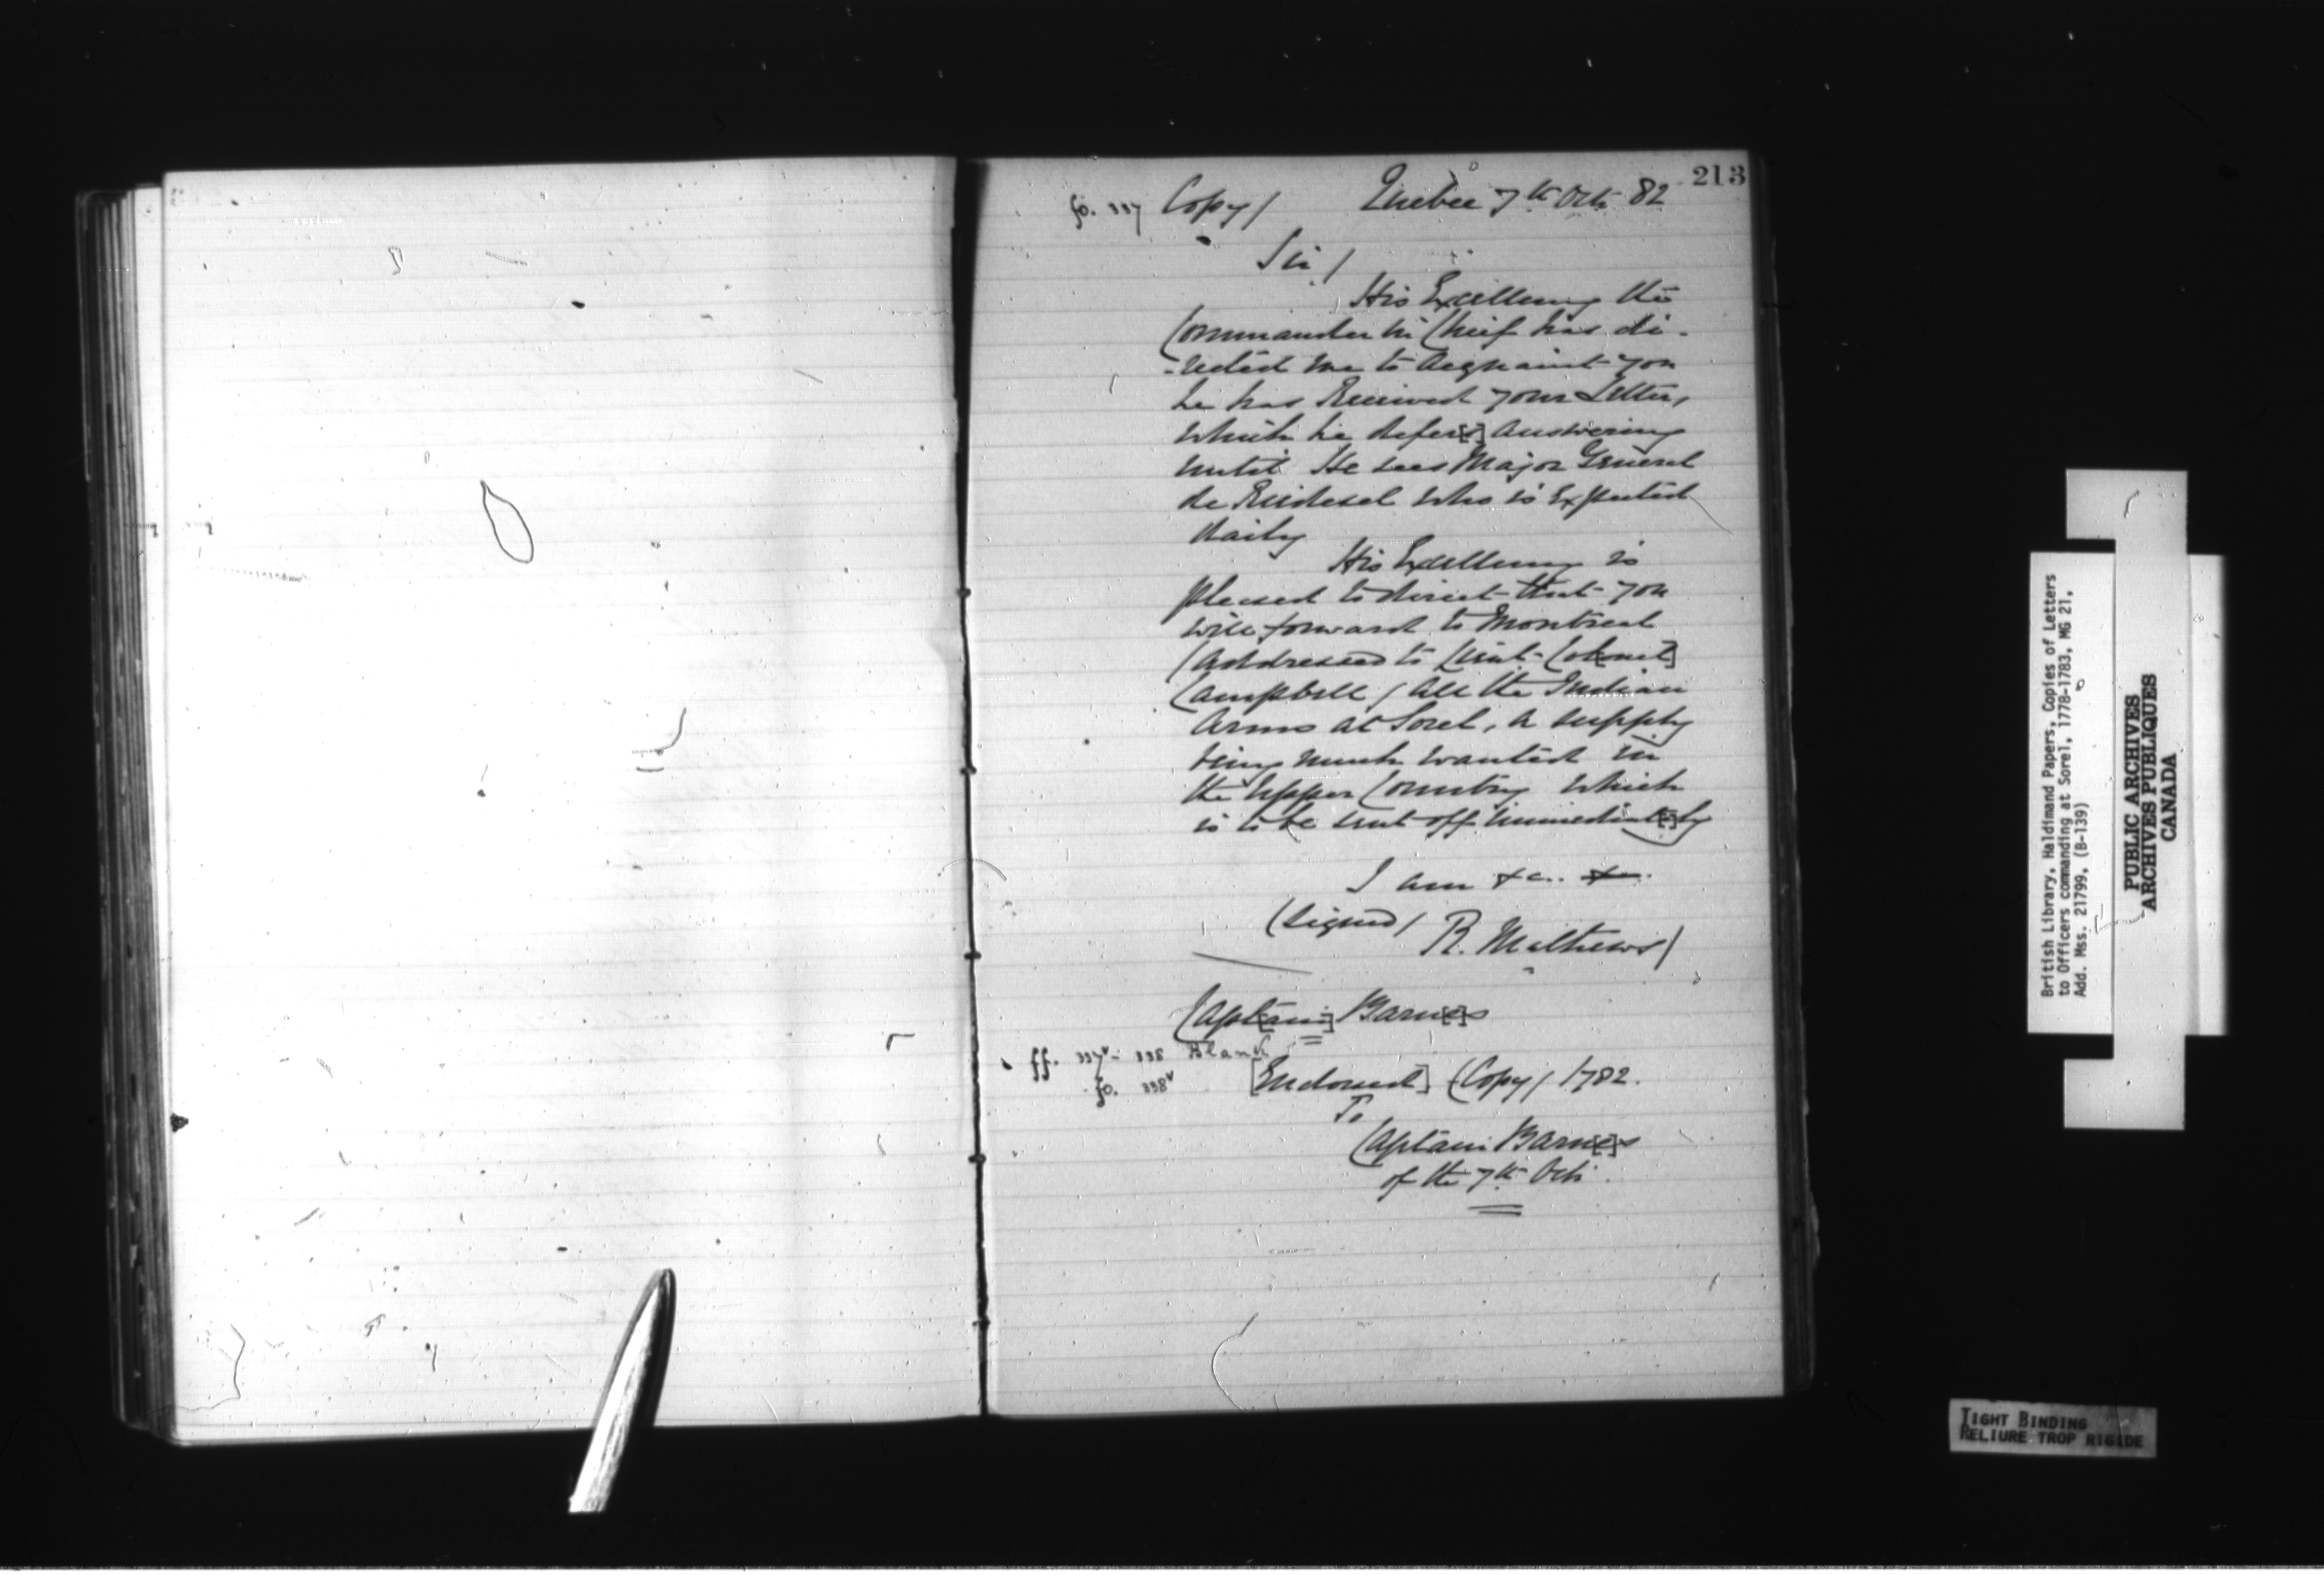 213
fo. 337 Copy/ Quebec 7th Octr 82
Sir/
His Excellency the
Commander in Chief has di-
-rected me to Acquaint you
he has Received your Letter,
which he defer[s] Answering
until He sees Major General
de Reidesel who is Expected
daily
His Excellency is
pleased to direct that you
will forward to Montreal
(Addressed to Lieut- Col[onel]
Campbell / all the Indian
Arms at Sorel, a supply
being much wanted in
the Upper Country which
is to be sent off immediat[e]ly
I am &c. &c.
(signed/ R. Mathews/
Capt[ain] Barn[e]s
ff. 337v - 338 Blank
fo. 338v [Endorsed] (Copy/ 1782.
To
Captain Barn[e]s
of the 7th Octr.
British Library, Haldimand Papers, Copies of Letters
to Officers commanding at Sorel, 1778-1783, MG 21,
Add. Mss. 21799, (B-139)
PUBLIC ARCHIVES
ARCHIVES PUBLIQUES
CANADA
TIGHT BINDING
RELIURE TROP RIGIDE